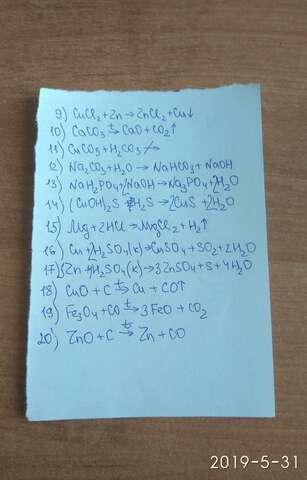 9) CuCl₂+Zn→ZnCl₂+Cu↓
10) CaCO₃ t→ CaO+CO₂↑
11) CuCO₃+H₂CO₃ ↛
12) Na₂CO₃+H₂O → NaHCO₃ + NaOH
13) NaH₂PO₄+2NaOH→Na₃PO₄+2H₂O
14) (CuOH)₂S + H₂S → 2CuS + 2H₂O
15) Mg+2HCl→MgCl₂+H₂↑
16) Cu+2H₂SO₄(к)→CuSO₄+SO₂+2H₂O
17) 3Zn+4H₂SO₄(к)→3ZnSO₄+S+4H₂O
18) CuO + C t→ Cu + CO↑
19) Fe₃O₄+CO t→ 3FeO + CO₂
20) ZnO+C t→ Zn + CO
2019-5-31